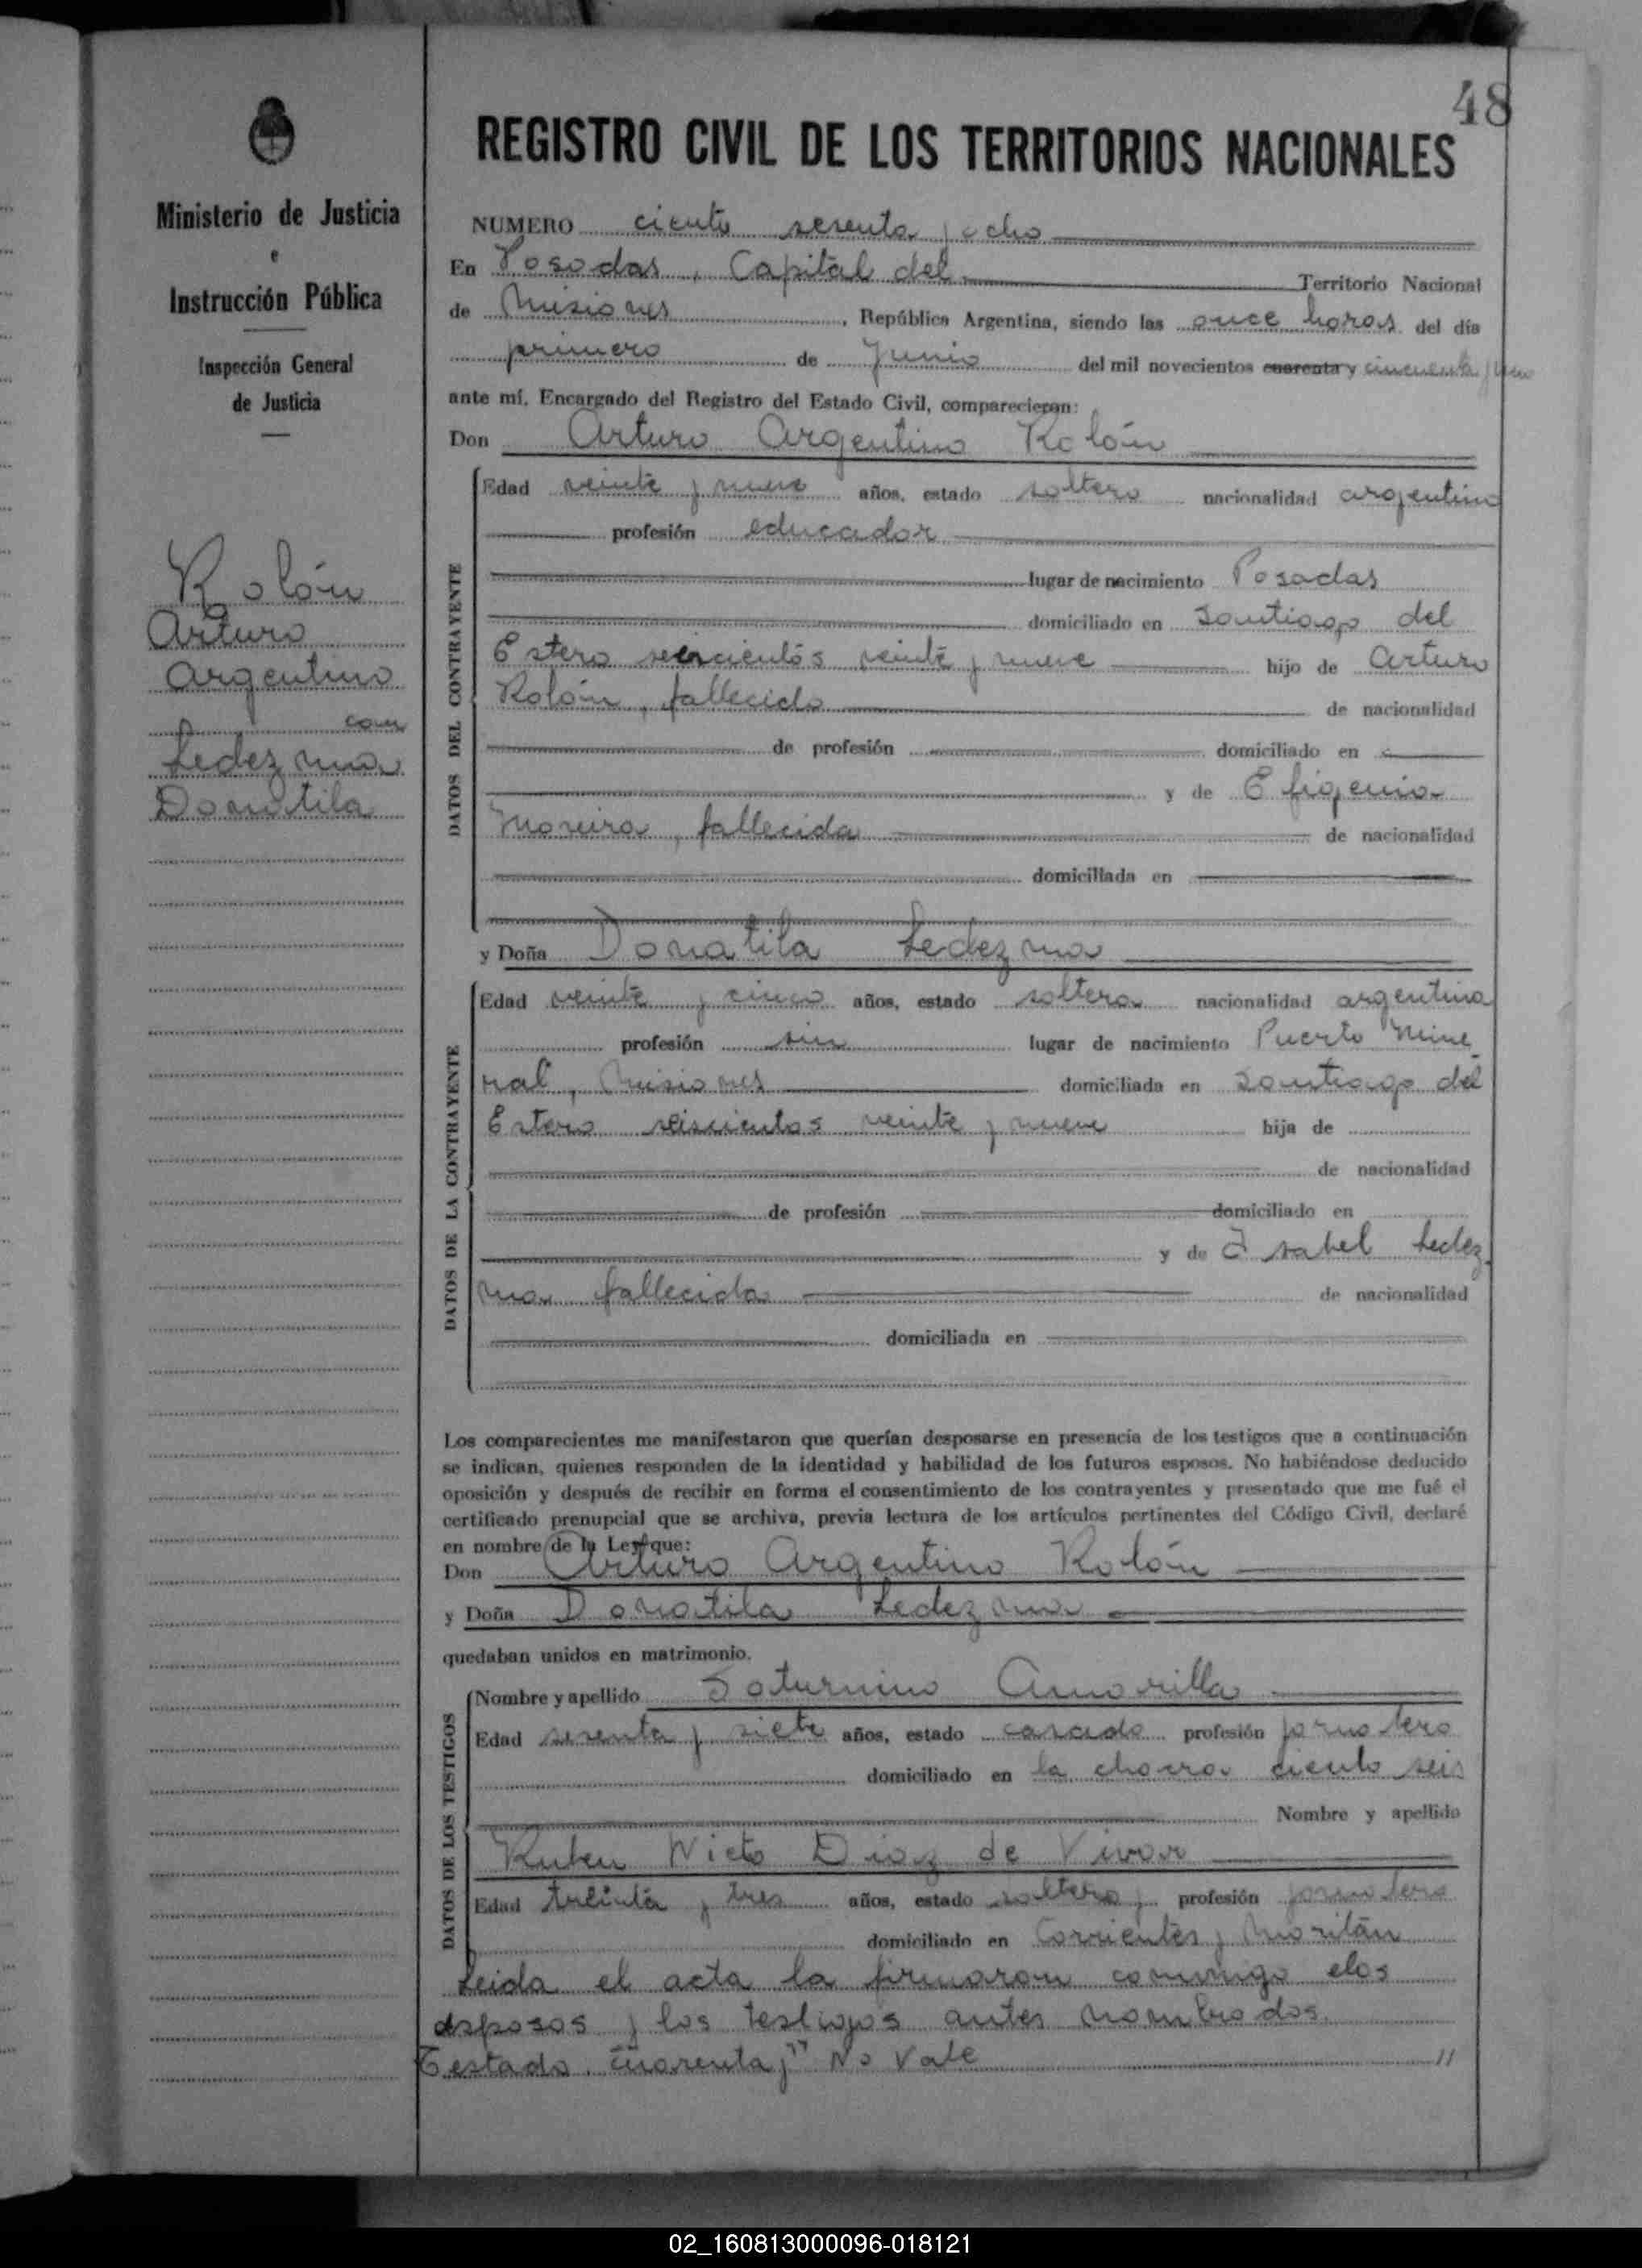 48
REGISTRO CIVIL DE LOS TERRITORIOS NACIONALES
Ministerio de Justicia
e
Instrucción Pública
Inspección General
de Justicia
Rolón
Arturo
Argentino
con
Ledezma
Donatila
NUMERO ciento sesenta y ocho
En Posadas, Capital del Territorio Nacional
de Misiones, República Argentina, siendo las once horas del día
primero de Junio del mil novecientos cuarenta y cincuenta y uno
ante mí, Encargado del Registro del Estado Civil, comparecieron:
Don Arturo Argentino Rolón
DATOS DEL CONTRAYENTE
Edad veinte y nueve años, estado soltero nacionalidad argentino
profesión educador
lugar de nacimiento Posadas
domiciliado en Santiago del
Estero seiscientos veinte y nueve hijo de Arturo
Rolón, fallecido de nacionalidad
de profesión domiciliado en
y de Efigenia
Moreira, fallecida de nacionalidad
domiciliada en
y Doña Donatila Ledezma
DATOS DE LA CONTRAYENTE
Edad veinte y cinco años, estado soltera nacionalidad argentina
profesión sin lugar de nacimiento Puerto Mine
ral, Misiones domiciliada en Santiago del
Estero seiscientos veinte y nueve hija de
de nacionalidad
de profesión domiciliado en
y de Isabel Ledez
ma fallecida de nacionalidad
domiciliada en
Los comparecientes me manifestaron que querían desposarse en presencia de los testigos que a continuación
se indican, quienes responden de la identidad y habilidad de los futuros esposos. No habiéndose deducido
oposición y después de recibir en forma el consentimiento de los contrayentes y presentado que me fué el
certificado prenupcial que se archiva, previa lectura de los artículos pertinentes del Código Civil, declaré
en nombre de la Ley que:
Don Arturo Argentino Rolón
y Doña Donatila Ledezma
quedaban unidos en matrimonio.
DATOS DE LOS TESTIGOS
Nombre y apellido Saturnino Amarilla
Edad sesenta y siete años, estado casado profesión jornalero
domiciliado en la chacra ciento seis
Nombre y apellido
Ruben Nieto Diaz de Vivar
Edad treinta y tres años, estado soltero, profesión jornalero
domiciliado en Corrientes y
Leida el acta la firmaron conmigo elos
esposos y los testigos antes nombrados.
Testado "cuarenta y" No Vale "
02_160813000096-018121